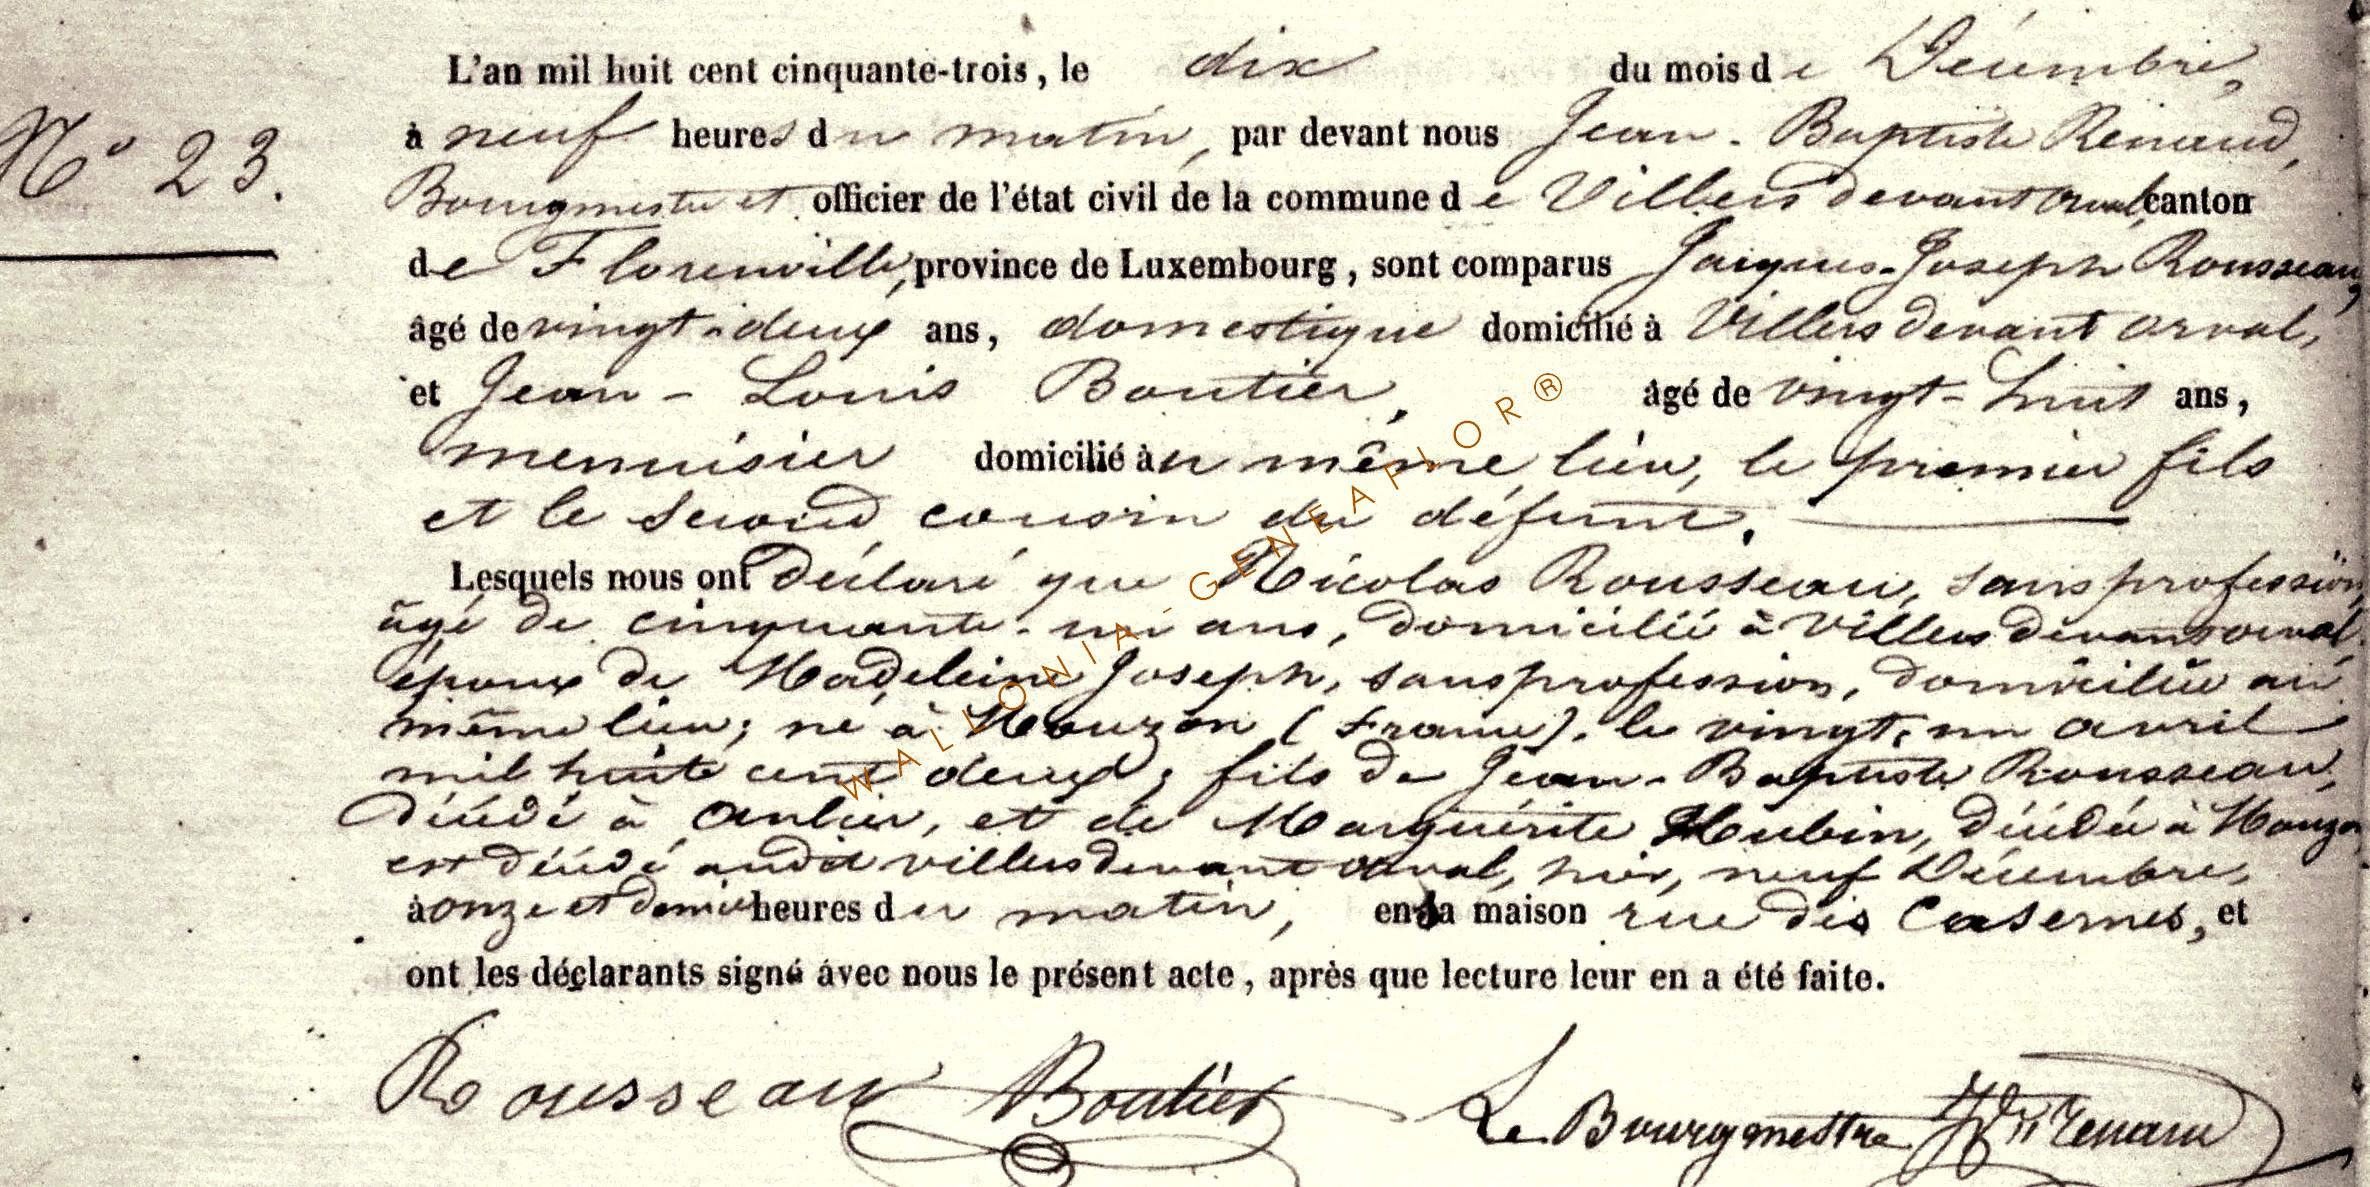 L'an mil huit cent cinquante-trois, le dix du mois de Décembre,
N° 23.
à neuf heures du matin, par devant nous Jean-Baptiste Renaud,
Bourgmestre et officier de l'état civil de la commune de Villers devant orval, canton
de Florenville, province de Luxembourg, sont comparus Jacques-Joseph Rousseau,
âgé de vingt-deux ans, domestique domicilié à Villers devant orval,
et Jean-Louis Boutier, âgé de vingt-huit ans,
menuisier domicilié au même lieu, le premier fils
et le second cousin du défunt.
Lesquels nous ont déclaré que Nicolas Rousseau, sans profession,
âgé de cinquante-un ans, domicilié à Villers devant orval,
époux de Madeleine Joseph, sans profession, domiciliée au
même lieu; né à Mouzon (France), le vingt-un avril
mil huite cent deux; fils de Jean-Baptiste Rousseau,
décédé à anlier, et de Marguérite Hubin, décédée à Mouzon,
est décédé audit villers devant orval, hier, neuf Décembre,
à onze et demie heures du matin, en sa maison rue des Casernes, et
ont les déclarants signé avec nous le présent acte, après que lecture leur en a été faite.
Rousseau Boutier Le Bourgmestre Renaud
WALLONIA-GENEAFLOR®